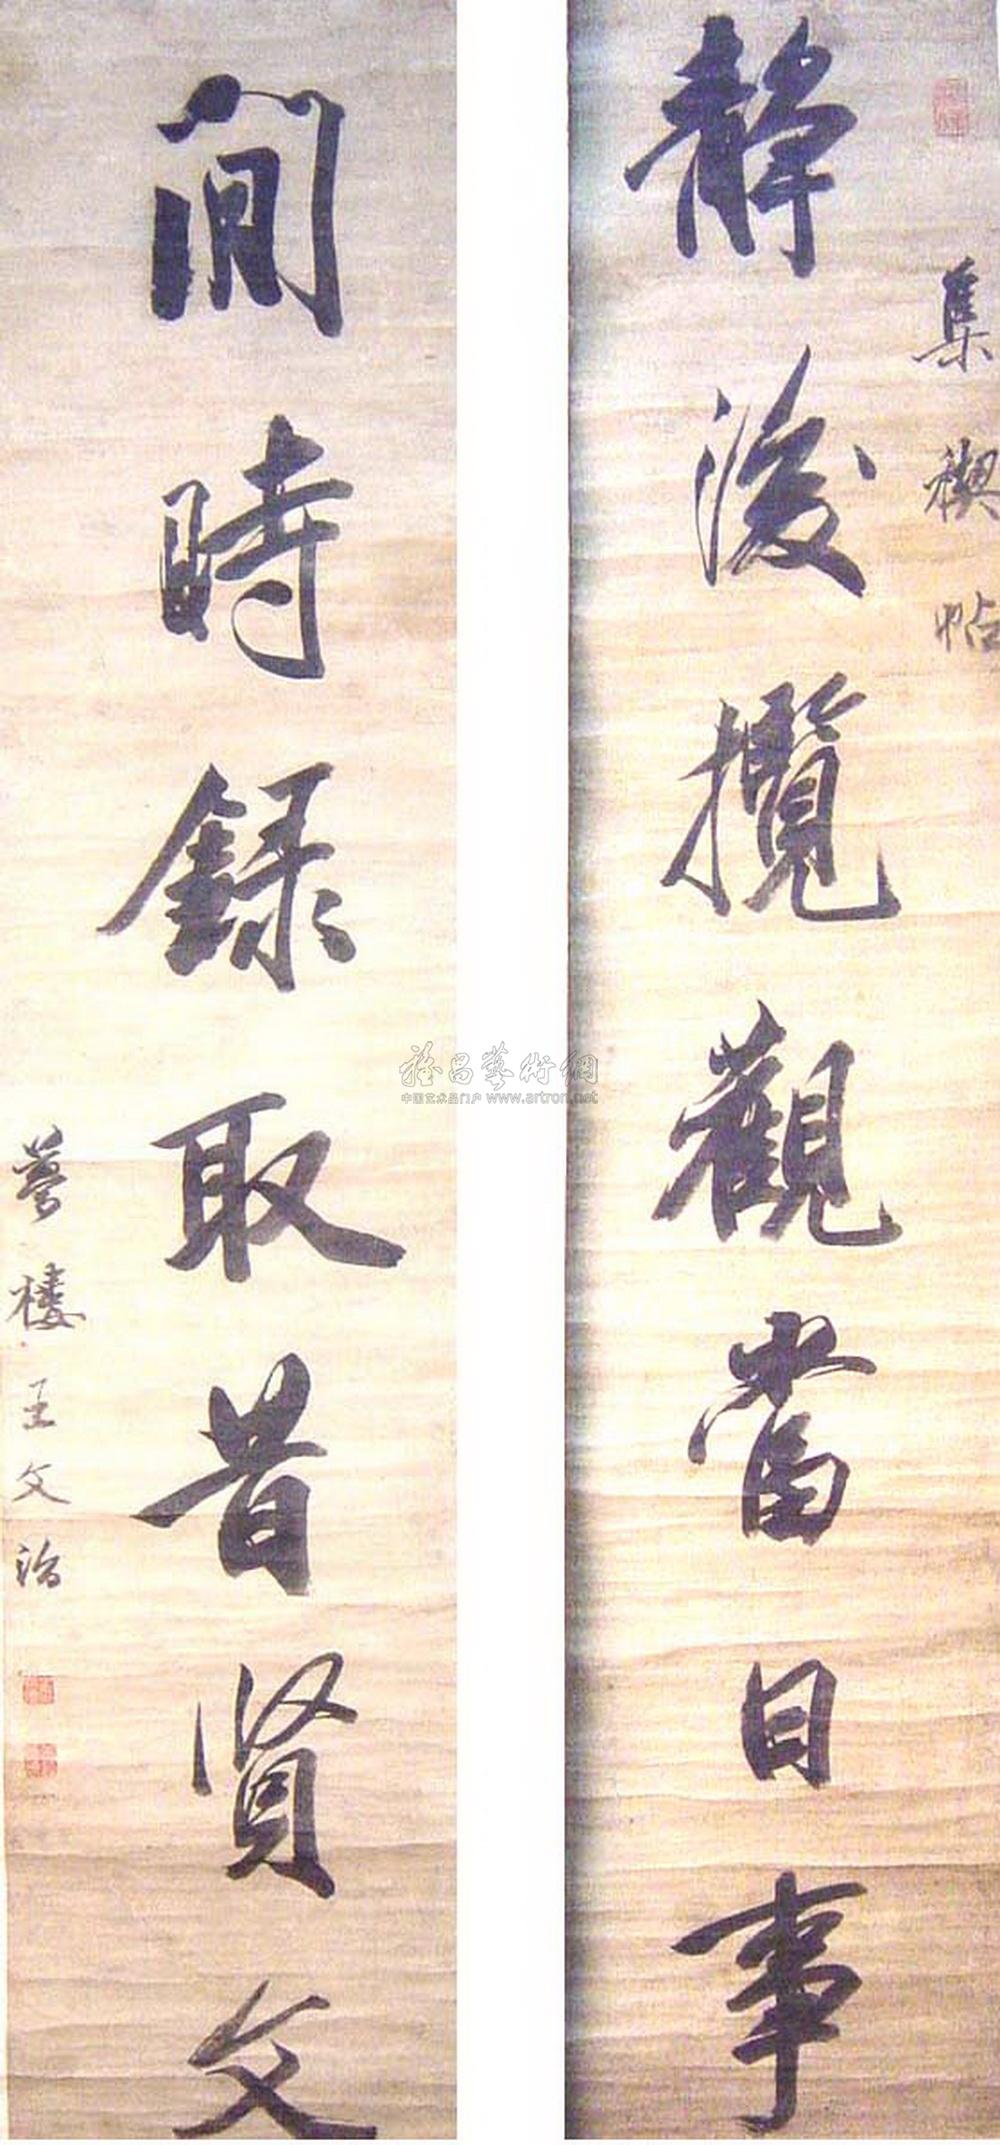 集禊帖
靜後攬觀當日事
閒時録取昔賢文
夢樓王文治
雅昌藝術網
中国艺术品门户 www.artron.net